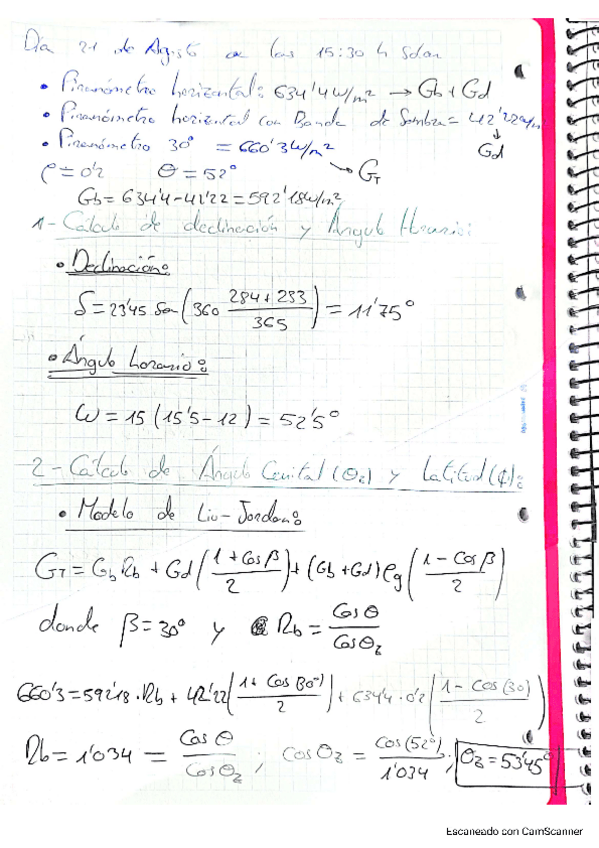 Día 21 de Agosto a las 15:30 h Solar
• Piranómetro horizontal: 634'4 W/m² → Gb + Gd
• Piranómetro horizontal con Banda de Sombra = 42'22 W/m²
↓
Gd
• Piranómetro 30° = 660'3 W/m²
→ G_T
ρ = 0'2 θ = 52°
Gb = 634'4 - 41'22 = 592'18 W/m²
1- Cálculo de declinación y Ángulo Horario:
• Declinación:
δ = 23'45 Sen (360 (284 + 233)/365) = 11'75°
• Ángulo horario:
ω = 15 (15'5 - 12) = 52'5°
2- Cálculo de Ángulo Cenital (θz) y Latitud (ϕ):
• Modelo de Liu-Jordan:
G_T = Gb Rb + Gd ((1 + Cos β)/2) + (Gb + Gd) ρg ((1 - Cos β)/2)
donde β = 30° y Rb = Cos θ/Cos θz
660'3 = 592'18 · Rb + 42'22 ((1 + Cos (30°))/2) + 634'4 · 0'2 ((1 - Cos (30))/2)
Rb = 1'034 = Cos θ/Cos θz ; Cos θz = Cos (52°)/1'034 ; θz = 53'45°
Escaneado con CamScanner